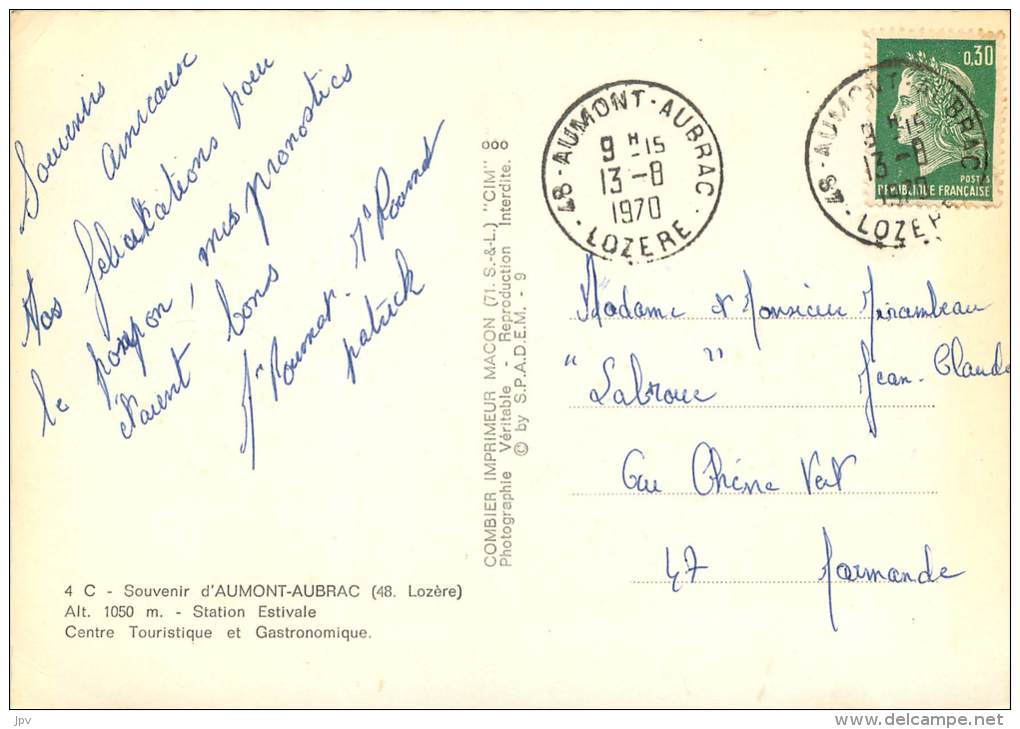 Souvenirs amicaux
Nos félicitations pour
le pompon, mes pronostics
étaient bons
Mr Roumat. Me Roumat
patrick
4 C - Souvenir d'AUMONT-AUBRAC (48. Lozère)
Alt. 1050 m. - Station Estivale
Centre Touristique et Gastronomique.
COMBIER IMPRIMEUR MACON (71. S.-&-L.) "CIM"
Photographie Véritable - Reproduction Interdite.
© by S.P.A.D.E.M. - 9
48 - AUMONT-AUBRAC
9 H -15
13 -8
1970
LOZERE
0,30
POSTES
REPUBLIQUE FRANÇAISE
48 - AUMONT-AUBRAC
9 H -15
13 -8
1970
LOZERE
Madame et Monsieur Mirambeau
"Labroue" Jean-Claude
Chêne Vert
47 Marmande
jpv
delcampe.net